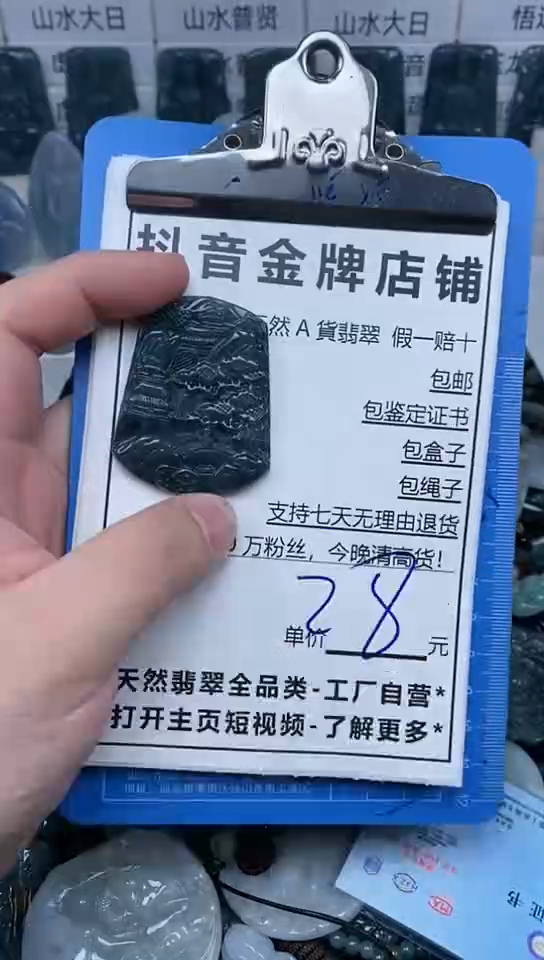 山水大日 山水普贤 山水大日 悟道
抖音金牌店铺
然A貨翡翠 假一赔十
包邮
包鉴定证书
包盒子
包绳子
支持七天无理由退货
万粉丝，今晚清高货！
单价 28 元
天然翡翠全品类-工厂自营*
打开主页短视频-了解更多*
证书